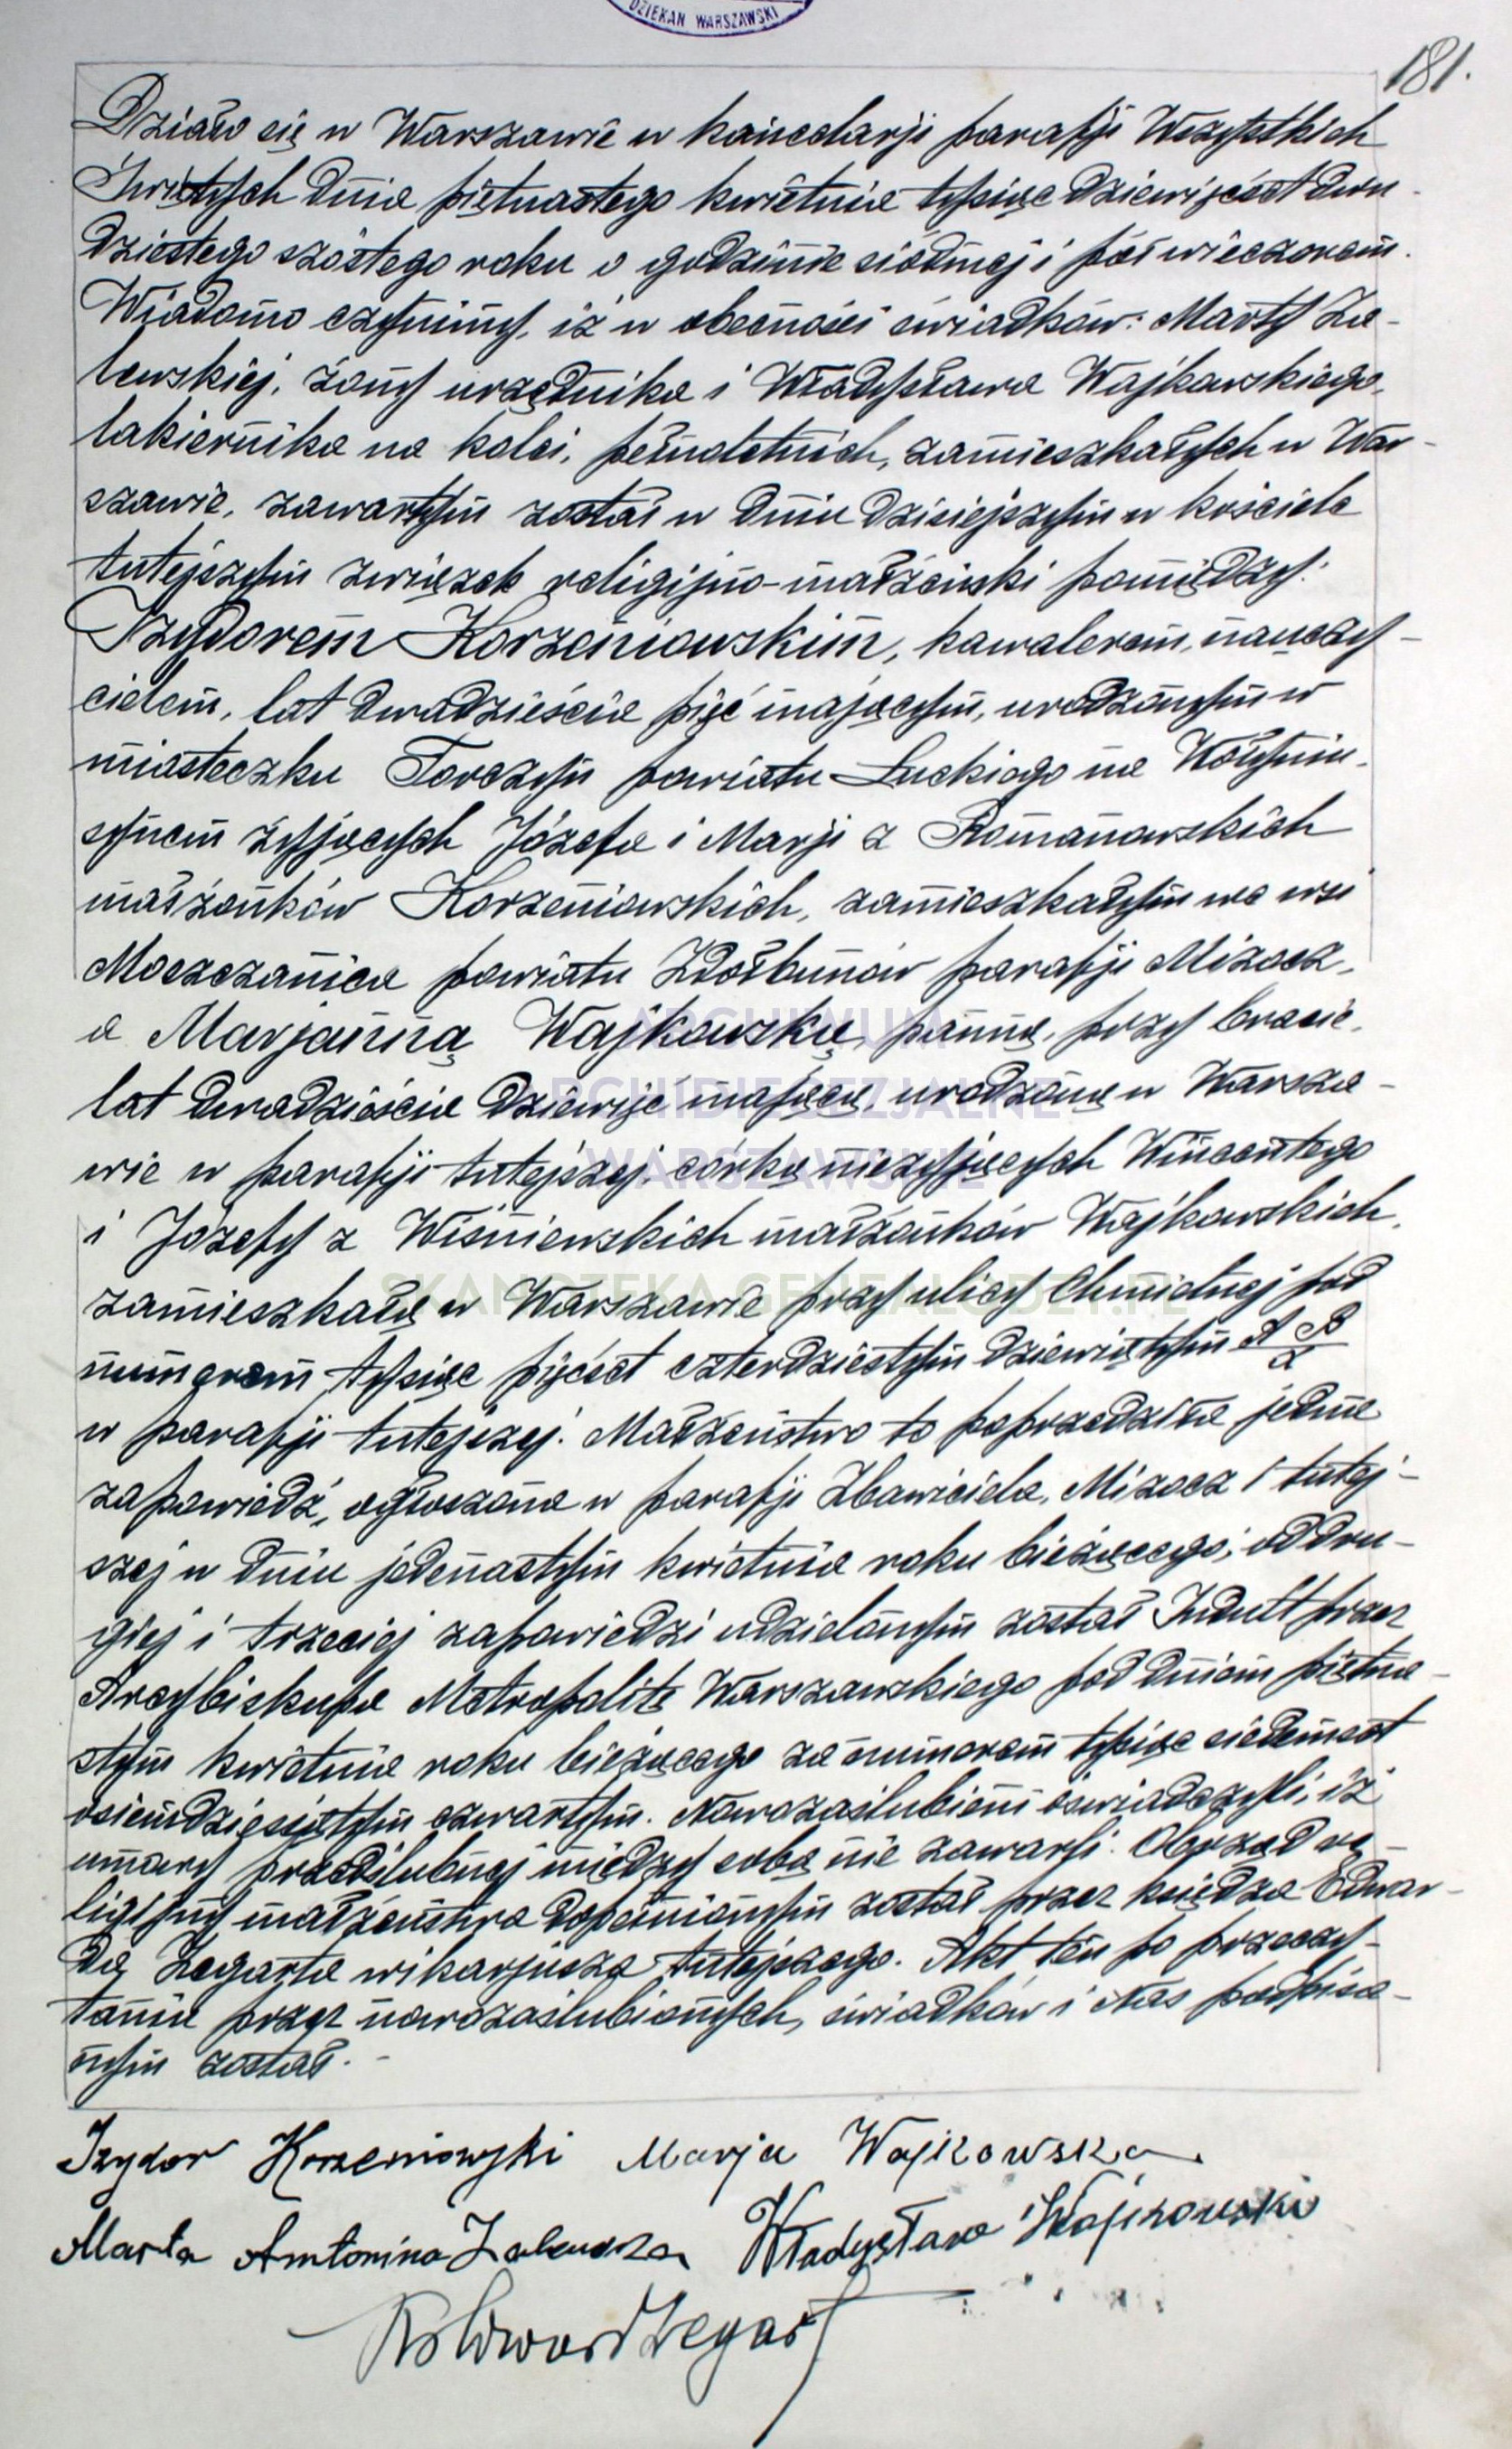 DZIEKAN WARSZAWSKI
181.
Działo się w Warszawie w kancelarji parafji Wszystkich
Świętych dnia piętnastego kwietnia tysiąc dziewięćset dwu-
dziestego szóstego roku o godzinie siódmej i pół wieczorem.
Wiadomo czynimy, iż w obecności świadków: Marty Za-
lewskiej, żony urzędnika i Władysława Wajkowskiego,
lakiernika na kolei, pełnoletnich, zamieszkałych w War-
szawie, zawartym został w dniu dzisiejszym w kościele
tutejszym związek religijno-małżeński pomiędzy:
Izydorem Korzeniowskim, kawalerem, nauczy-
cielem, lat dwadzieścia pięć mającym, urodzonym w
miasteczku Torczyn powiatu Łuckiego na Wołyniu,
synem żyjących Józefa i Marji z Romanowskich
małżonków Korzeniowskich, zamieszkałym we wsi
Moszczanica powiatu Zdołbunów parafji Mizocz,
a Marjanną Wajkowską, panną, przy bracie,
lat dwadzieścia dziewięć mającą, urodzoną w Warsza-
wie w parafji tutejszej, córką nieżyjących Wincentego
i Józefy z Wiśniewskich małżonków Wajkowskich,
zamieszkałą w Warszawie przy ulicy Chmielnej pod
numerem tysiąc pięćset czterdziestym dziewiątym A B/a
w parafji tutejszej. Małżeństwo to poprzedziła jedna
zapowiedź, ogłoszona w parafji Zbawiciela, Mizocz i tutej-
szej w dniu jedenastym kwietnia roku bieżącego; od dru-
giej i trzeciej zapowiedzi udzielonym został Indult przez
Arcybiskupa Metropolitę Warszawskiego pod dniem piętna-
stym kwietnia roku bieżącego za numerem tysiąc siedemset
osiemdziesiątym czwartym. Nowozaślubieni oświadczyli, iż
umowy przedślubnej między sobą nie zawarli. Obrzęd re-
ligijny małżeństwa dopełnionym został przez księdza Edwar-
da Zegarta wikarjusza tutejszego. Akt ten po przeczy-
taniu przez nowozaślubionych, świadków i Nas podpisa-
nym został.-
Izydor Korzeniowski Marja Wajkowska
Marta Antonina Zalewska Władysław Wajkowski
Ks Edward Zegart
ARCHIWUM
ARCHIDIECEZJALNE
WARSZAWSKIE
SKANOTEKA.GENEALODZY.PL